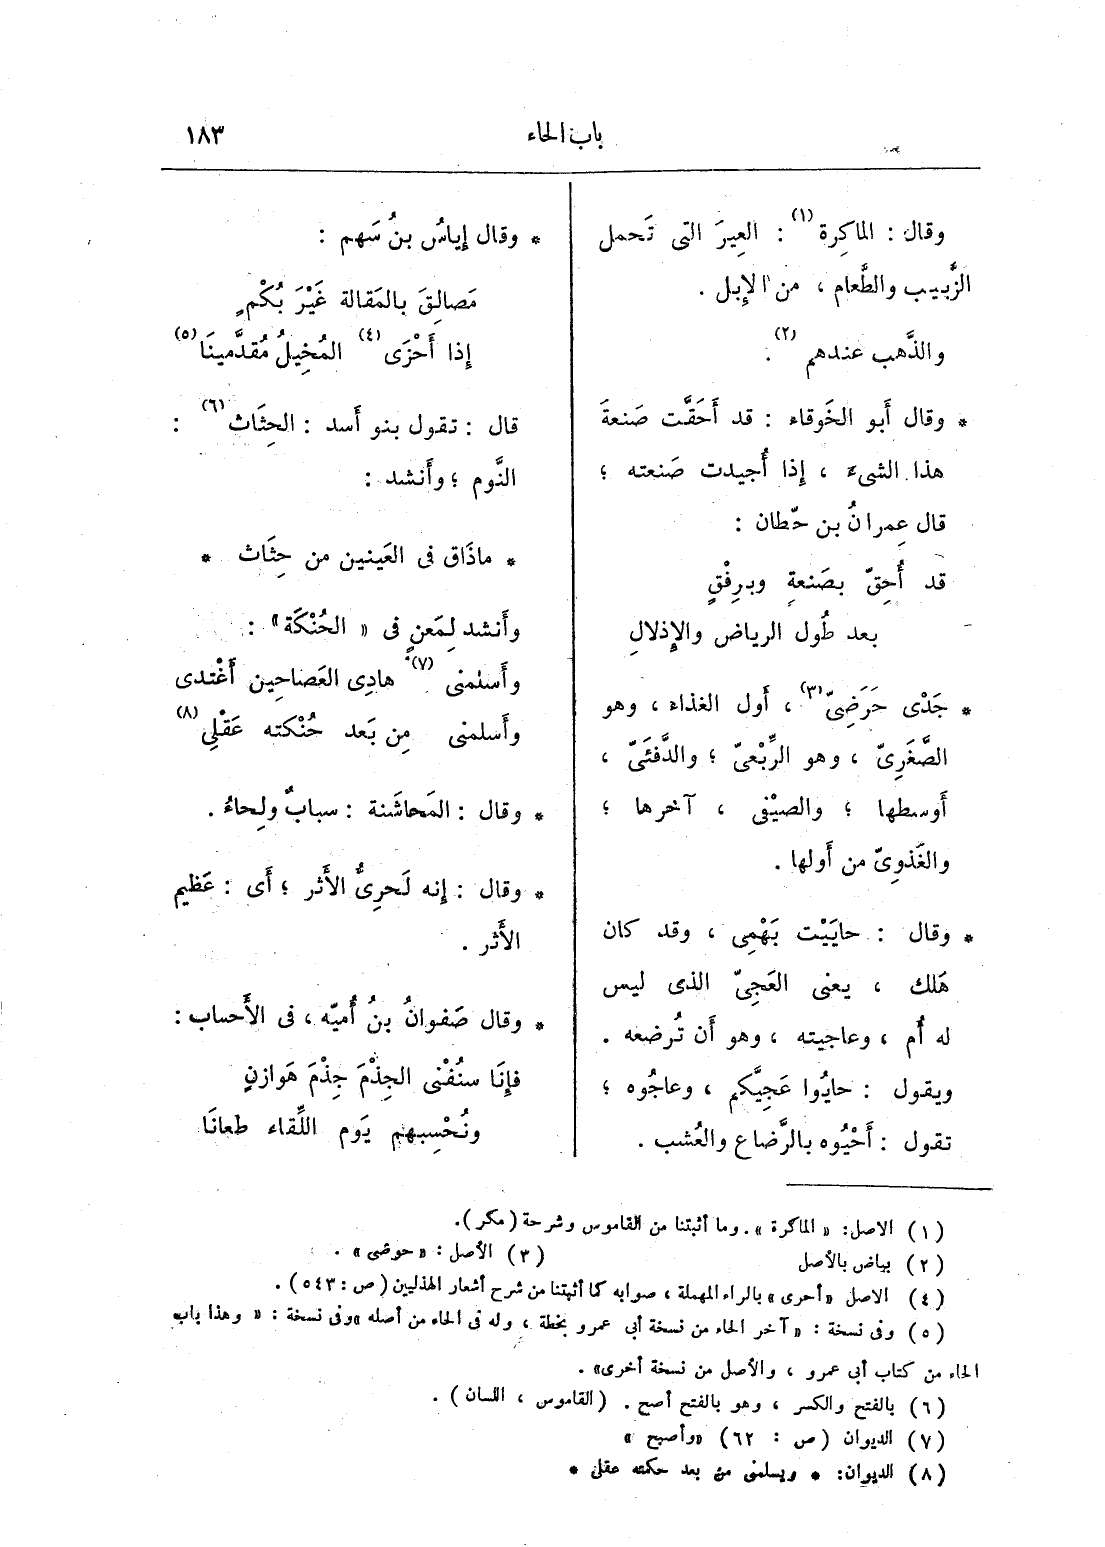 باب الحاء
١٨٣
وقال : الماكِرة (١) : العِيرَ التى تَحمل
الزَّبيب والطَّعام ، من الإبل .
والذَّهب عندهم (٢) .
* وقال أَبو الخَوقاء : قد أَحَقَّت صَنعةَ
هذا الشىء ، إذا أُجيدت صَنعته ؛
قال عِمرانُ بن حّطان :
قد أُحِقّ بصَنعةِ وبرِفْقٍ
بعد طُول الرياض والإذلالِ
* جَدْى حَرَضِىّ (٣) ، أَول الغذاء ، وهو
الصَّغَرِىّ ، وهو الرِّبْعىّ ؛ والدَّفَئىّ ،
أَوسطها ؛ والصيْفى ، آخرها ؛
والغَذوىّ من أَولها .
* وقال : حاييْت بَهْمِى ، وقد كان
هَلك ، يعنى العَجِىّ الذى ليس
له أُم ، وعاجيته ، وهو أَن تُرضعه .
ويقول : حايُوا عَجِيَّكم ، وعاجُوه ؛
تقول : أَحْيُوه بالرَّضاع والعُشب .
* وقال إياسُ بنُ سَهم :
مَصالِقَ بالمَقالة غَيْرَ بُكْمٍ
إذا أَحْزَى (٤) المُخِيلُ مُقدَّمينَا (٥)
قال : تقول بنو أَسد : الحِثَاث (٦) :
النَّوم ؛ وأَنشد :
* ماذَاق فى العَينين من حِثَاث *
وأَنشد لِمَعنٍ فى « الحُنْكَة » :
وأَسلمنى (٧) هادِى العَصاحِين أَغْتدى
وأَسلمنى مِن بَعد حُنْكته عَقْلِى (٨)
* وقال : المَحاشَنة : سبابٌ ولِحاءُ .
* وقال : إنه لَحرِىُّ الأَثر ؛ أَى : عَظيم
الأَثر .
* وقال صَفوانُ بنُ أُميّه ، فى الأَحساب :
فإنَا سنُفْنى الجِذْمَ جِذْمَ هَوازنٍ
ونُحْسِبهم يَوم اللِّقاء طعانَا
(١) الاصل: « الماكرة » . وما أثبتنا من القاموس وشرحة (مكر).
(٢) بياض بالأصل (٣) الأصل : « حوضى » .
(٤) الاصل « أحرى » بالراء المهملة ، صوابه كما أثبتنا من شرح أشعار الهذليين (ص : ٥٤٣) .
(٥) وفى نسخة : « آخر الحاء من نسخة أبى عمرو بخطة ، وله فى الحاء من أصله » وفى نسخة : « وهذا باب
الحاء من كتاب أبى عمرو ، والأصل من نسخة أخرى» .
(٦) بالفتح والكسر ، وهو بالفتح أصح . (القاموس ، اللسان) .
(٧) الديوان (ص : ٦٢) «وأصبح »
(٨) الديوان: * ويسلمنى من بعد حكمته عقلى *